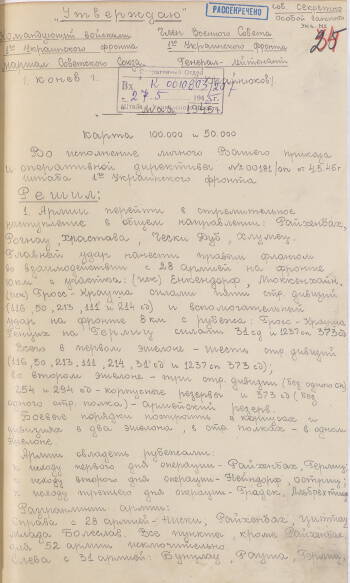 "Утверждаю"
РАССЕКРЕЧЕНО
Сов. секретно
Особой важности
Экз. №
25
Командующий войсками
1го Украинского фронта
Маршал Советского Союза
/ Конев /
Член Военного Совета
1го Украинского фронта
Генерал-Лейтенант
Вх. К 0010803/201
27.5 1945г.
мая 1945г.
Карта 100.000 и 50.000
Во исполнение личного Вашего приказа
и оперативной директивы № 00181/оп от 4.5.45г.
штаба 1го Украинского фронта
Решил:
1. Армии перейти в стремительное
наступление в общем направлении: Райхенбах,
Рогнау, Храстава, Чески Дуб, Хлумец.
Главный удар нанести правым флангом
во взаимодействии с 28 армией на фронте
с участка, (иск) Енкендорф,
(иск) Гросс-Крауша силами пяти стр. дивизий
(116, 50, 213, 111 и 214 сд) и вспомогательный
удар на фронте 8 км с рубежа Гросс-Крауша
на Герлиц силами 31 сд и 1237 сп 373 сд.
Всего в первом эшелоне - шесть стр. дивизий
(116, 50, 213, 111, 214, 31 сд и 1237 сп 373 сд);
во втором эшелоне - три стр. дивизии (без одного сп)
254 и 294 сд - корпусные резервы и 373 сд (без
одного стр. полка) - армейский резерв.
Боевые порядки построить в корпусах и
дивизиях в два эшелона, в стр. полках - в одном
эшелоне.
Армии овладеть рубежами:
к исходу первого дня операции - Райхенбах, Герлиц;
к исходу второго дня операции - Нейндорф, Остриц;
к исходу третьего дня операции - Градек,
Разгранлинии армии:
справа с 28 армией - Ниски, Райхенбах, Циттау,
Млада Болеслав. Все пункты, кроме Райхенбах
для 52 армии исключительно
Слева с 31 армией: Бунцлау,